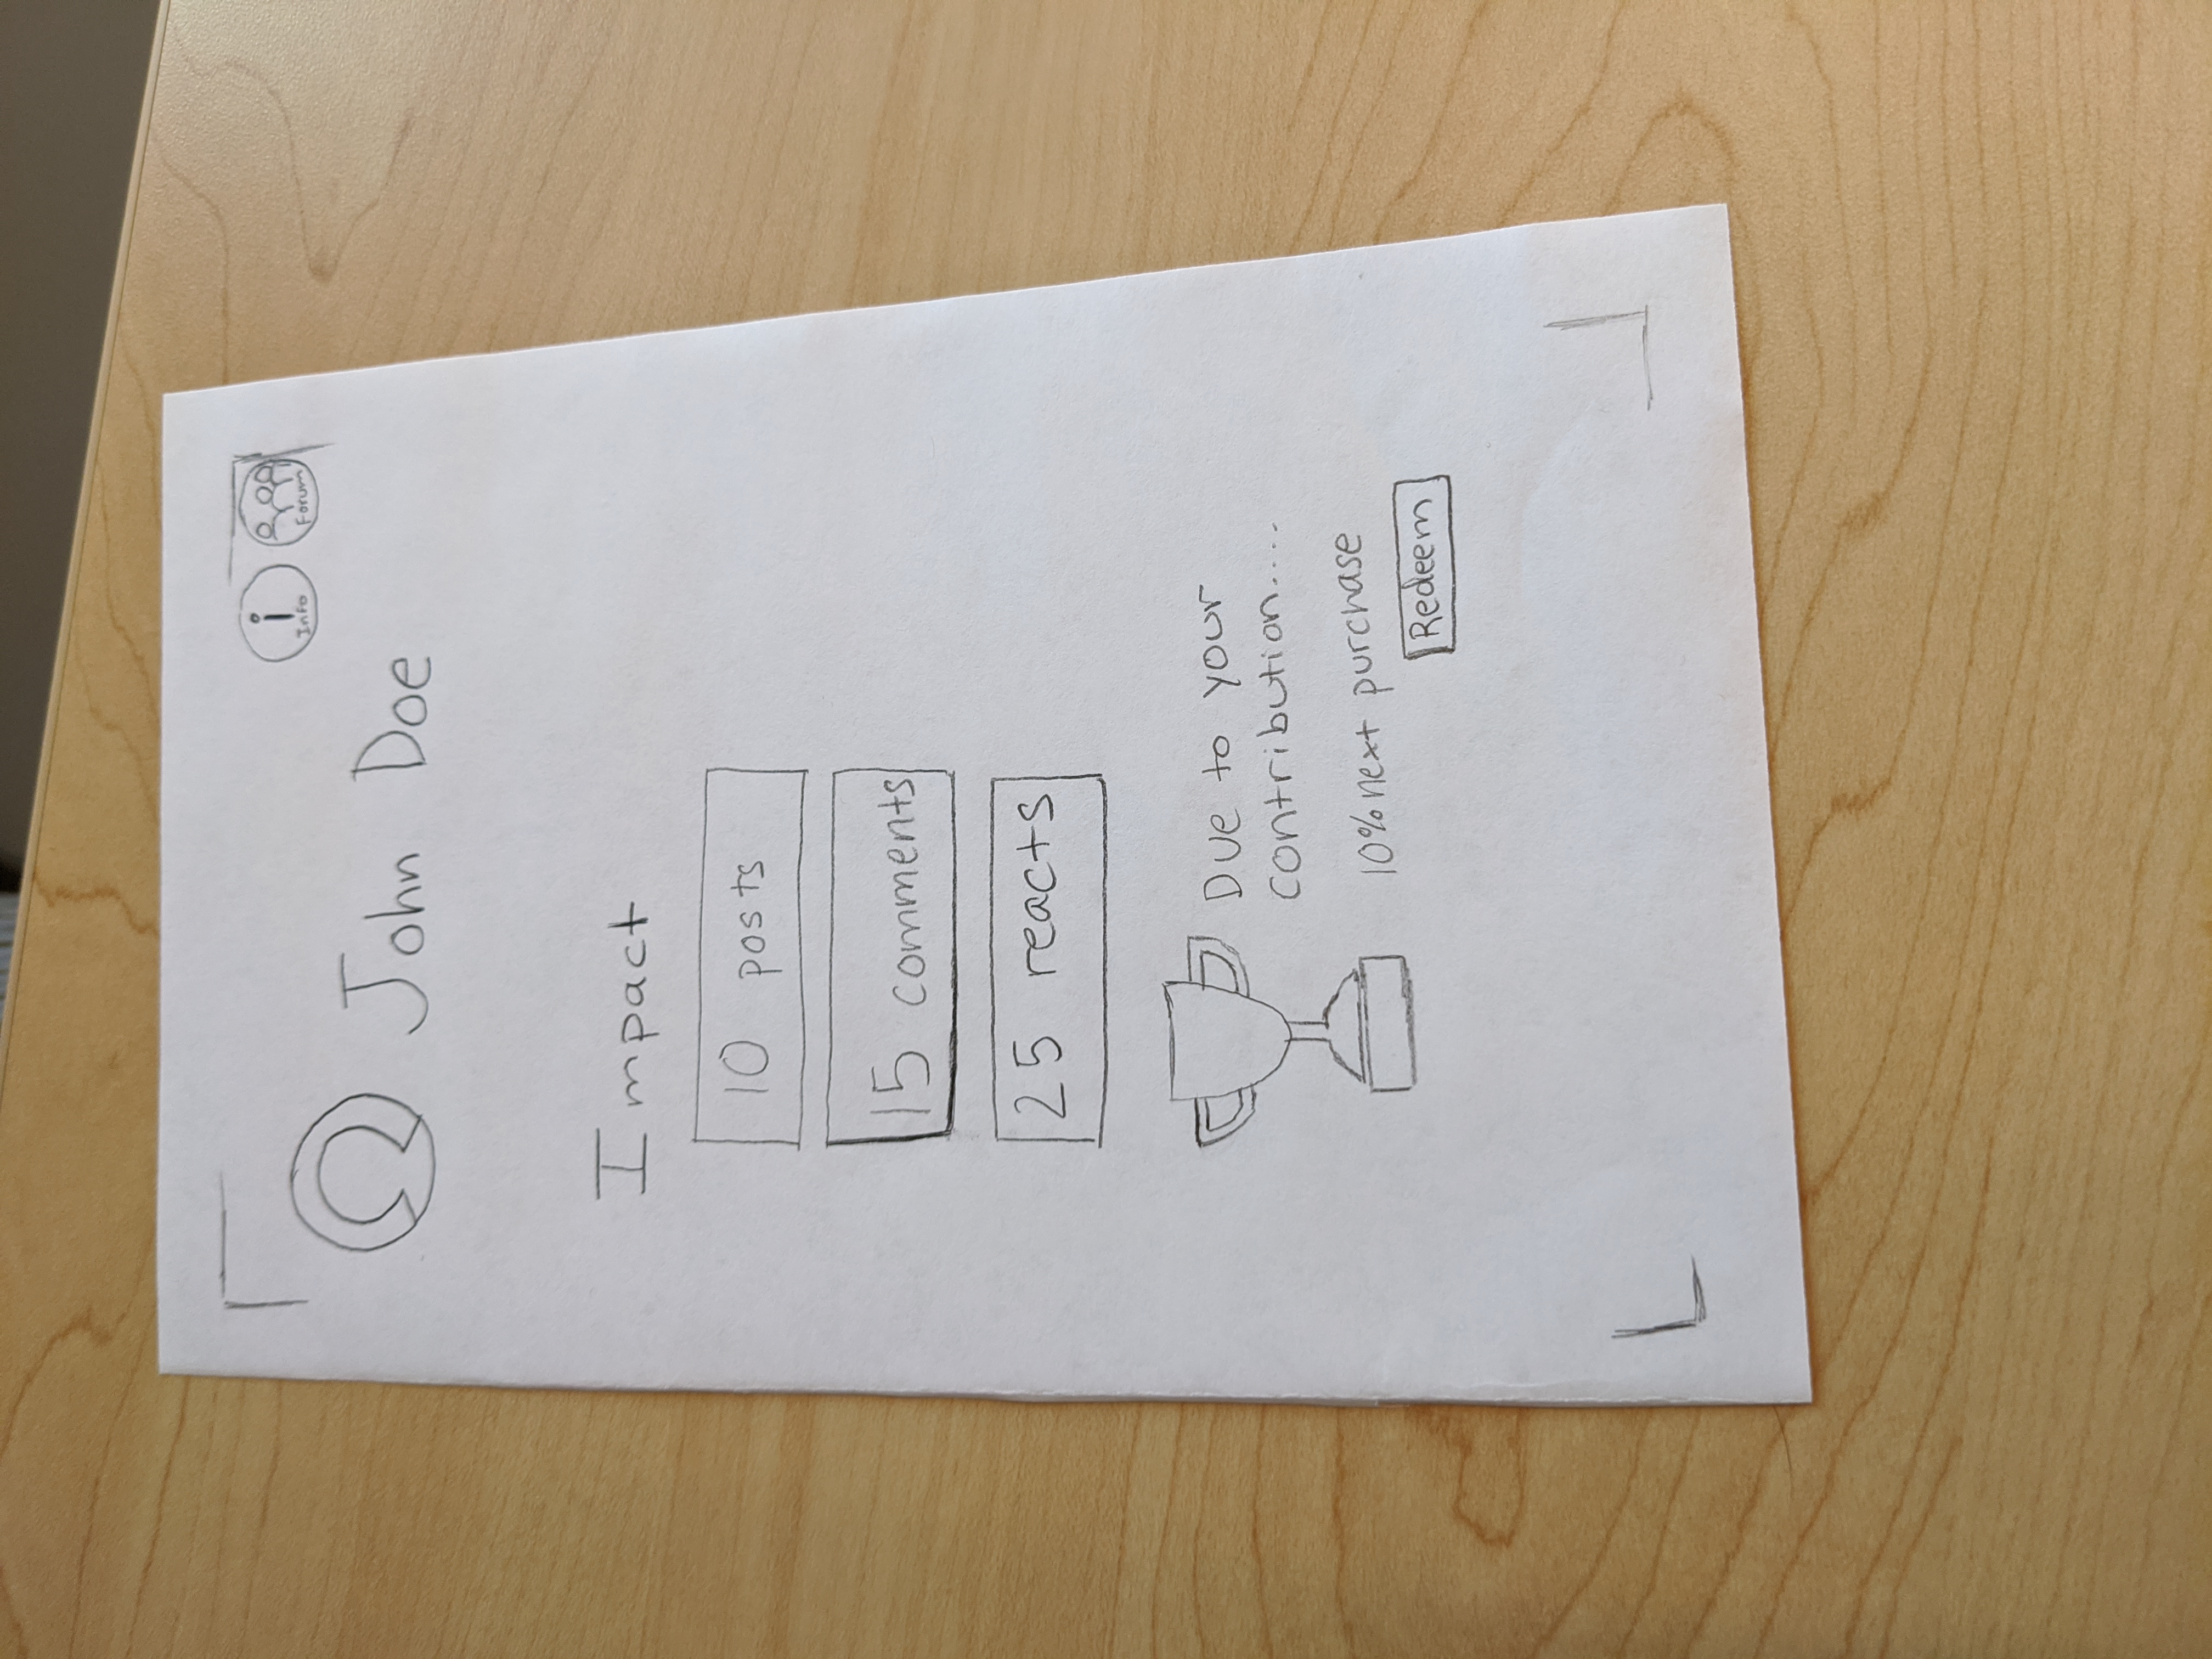 i
Info
Forum
John Doe
Impact
10 posts
15 comments
25 reacts
Due to your
contribution....
10% next purchase
Redeem